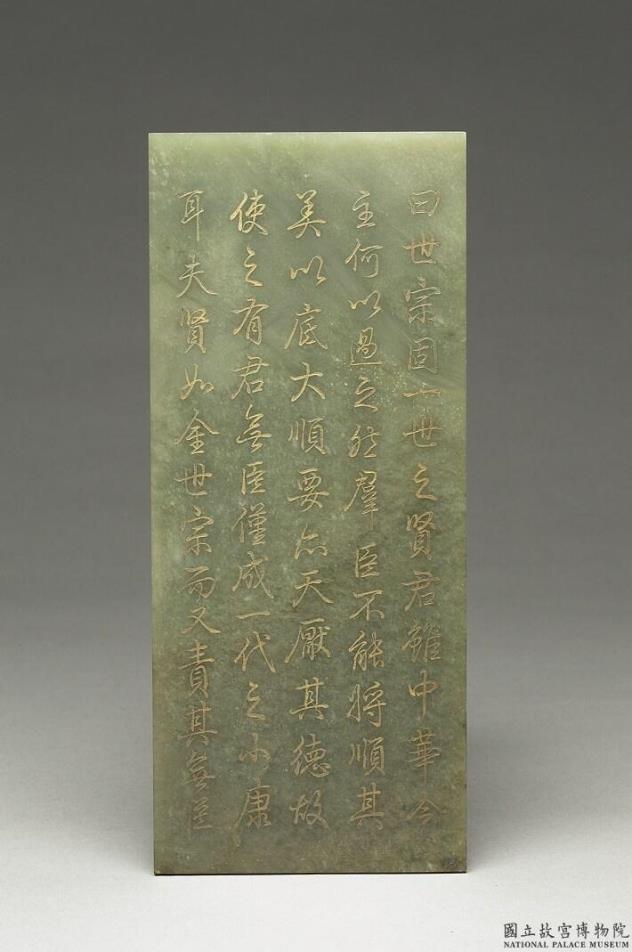 曰世宗固一世之賢君雖中華令
主何以過之然羣臣不能將順其
美以底大順要亦天厭其德故
使之有君無臣僅成一代之小康
耳夫賢如金世宗而又責其無臣
國立故宮博物院
NATIONAL PALACE MUSEUM